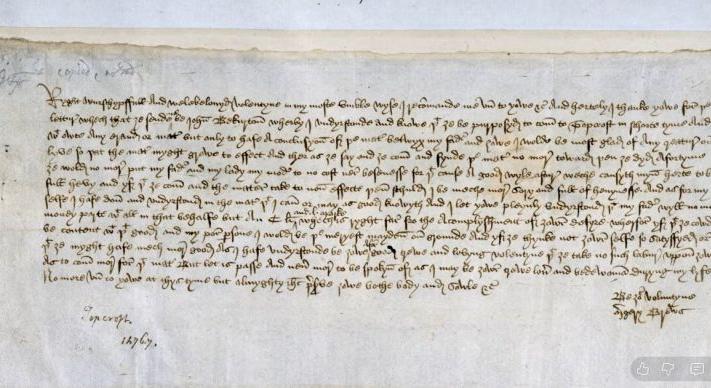 copied
Ryght wurschypffull and welebelouyd volentyne in my moste vmble wyse I recomande me vn to yowe &c And hertely I thanke yowe for þe
lettur whech that ye sende me be John Bekurton wherby I vndyrstonde and knowe þt ye be purposyd to com to Topcroft in schorte tyme and
wt owte any erand or mater but only to hafe a conclusyon of þe mater betwyx my fadur and yowe I wolde be most glad of any creatur on
lyve so þt the mater myght growe to effect And ther as ye say and ye com and fynde þe mater no mor toward then ye dyd afortyme
ye wold no mor put my fadur and my lady my moder to no cost ner besenesse for þt cause a good wyle aftyr weche causyth myn herte to be
full hevy and yf þt ye com and the mater take to non effecte then schuld I be meche mor sory and full of heuynesse And as for my
selfe I hafe don and vndyrstond in the mater þt I can or may as Good knowyth And I lete yowe pleynly vndyrstond þt my fader wyll no mor
money parte wt all in that behalfe but an C li and l marke wech is ryght far fro the acomplyshment of yowr desyre wherfor yf þt ye cowde
be content wt þt good and my por persone I wold be þe meryest mayden on grounde And yf ye thynke not yowr selfe so satysfyed or
þt ye myght hafe mech mor good as I hafe vndyrstonde be yowe afor good trewe and lovyng volentyne þt ye take no such labur vppon yowe
as to com mor for þt mater But let is passe And neuer mor to be spokyn of as I may be yowr trewe lover and bedewoman duryng my lyfe
No more vn to yowe at thys tyme but almyghty Jhs preserue yowe bothe body and sowle &c
Be yor voluntyne
Mergery Brews
Topcroft.
1476/7.